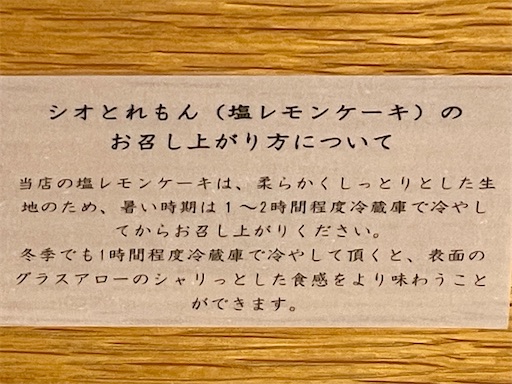 シオとれもん（塩レモンケーキ）の
お召し上がり方について
当店の塩レモンケーキは、柔らかくしっとりとした生
地のため、暑い時期は１～2時間程度冷蔵庫で冷やし
てからお召し上がりください。
冬季でも1時間程度冷蔵庫で冷やして頂くと、表面の
グラスアローのシャリっとした食感をより味わうこと
ができます。